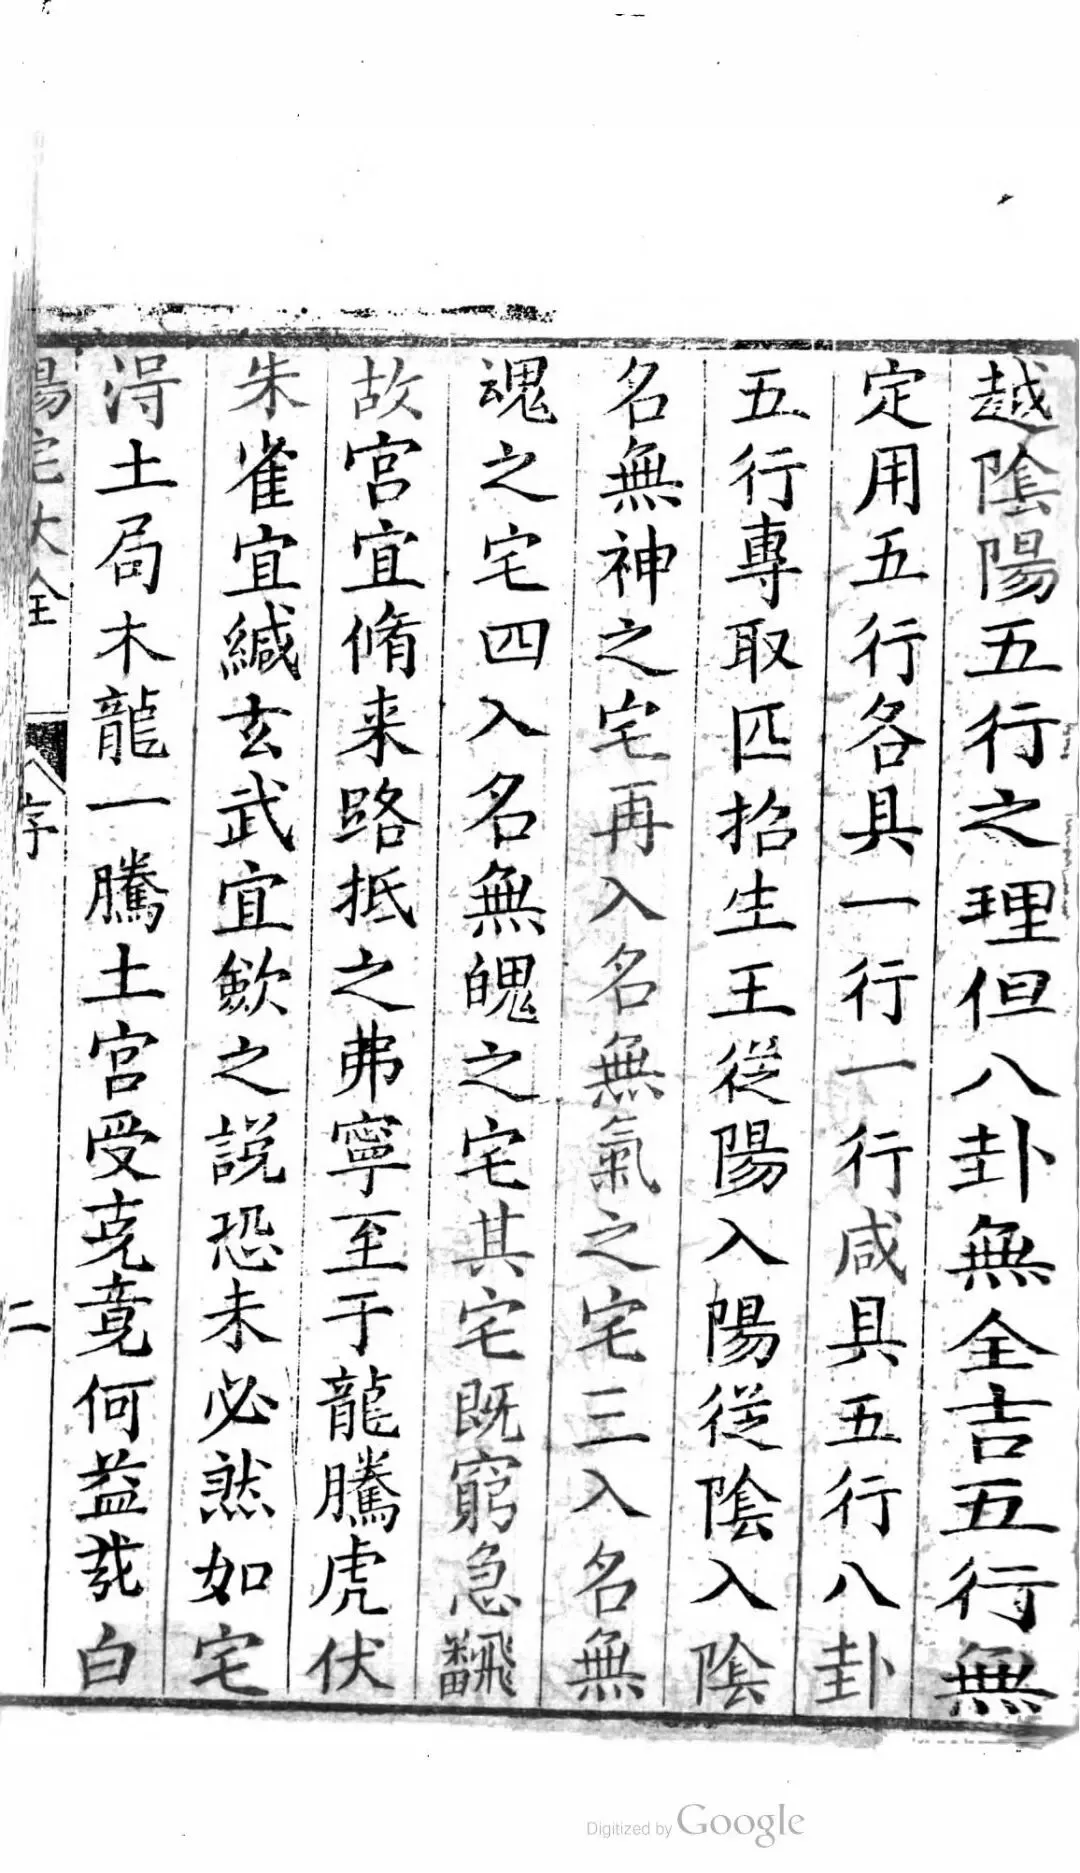 越陰陽五行之理但八卦無全吉五行無
定用五行各具一行一行咸具五行八卦
五行專取匹招生王從陽入陽從陰入陰
名無神之宅再入名無氣之宅三入名無
魂之宅四入名無魄之宅其宅既窮急翻
故宮宜脩来路抵之弗寧至于龍騰虎伏
朱雀宜緘玄武宜歛之説恐未必然如宅
淂土局木龍一騰土宮受克竟何益㦲白
陽宅大全
序
二
Digitized by Google